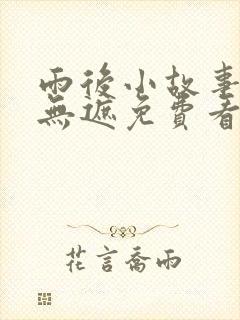 雨後小故事
無遮免費看
花言喬雨